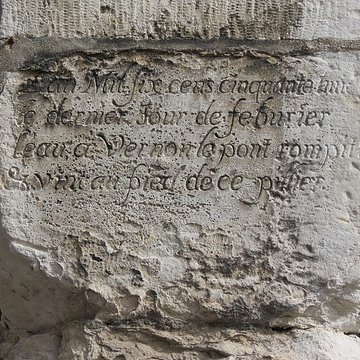 L'an Mil six cens cinquante huit
le dernier Jour de feburier
leau a Vernon le pont rompit
Et vint au pied de ce pilier.